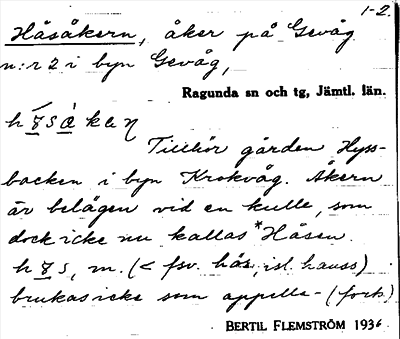 1-2.
Håsåkern, åker på Gevåg
n:r 2 i byn Gevåg,
Ragunda sn och tg, Jämtl. län.
Tillhör gården Hyss-
backen i byn Krokvåg. Åkern
är belägen vid en kulle, som
dock icke nu kallas *Håsen
m. (< fsv. hås, isl. hauss)
brukas icke som appella- (forts.)
BERTIL FLEMSTRÖM 1936